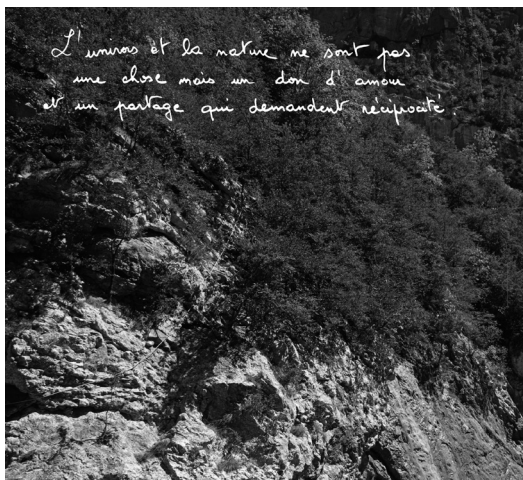 L'univers et la nature ne sont pas
une chose mais un don d'amour
et un partage qui demandent réciprocité.